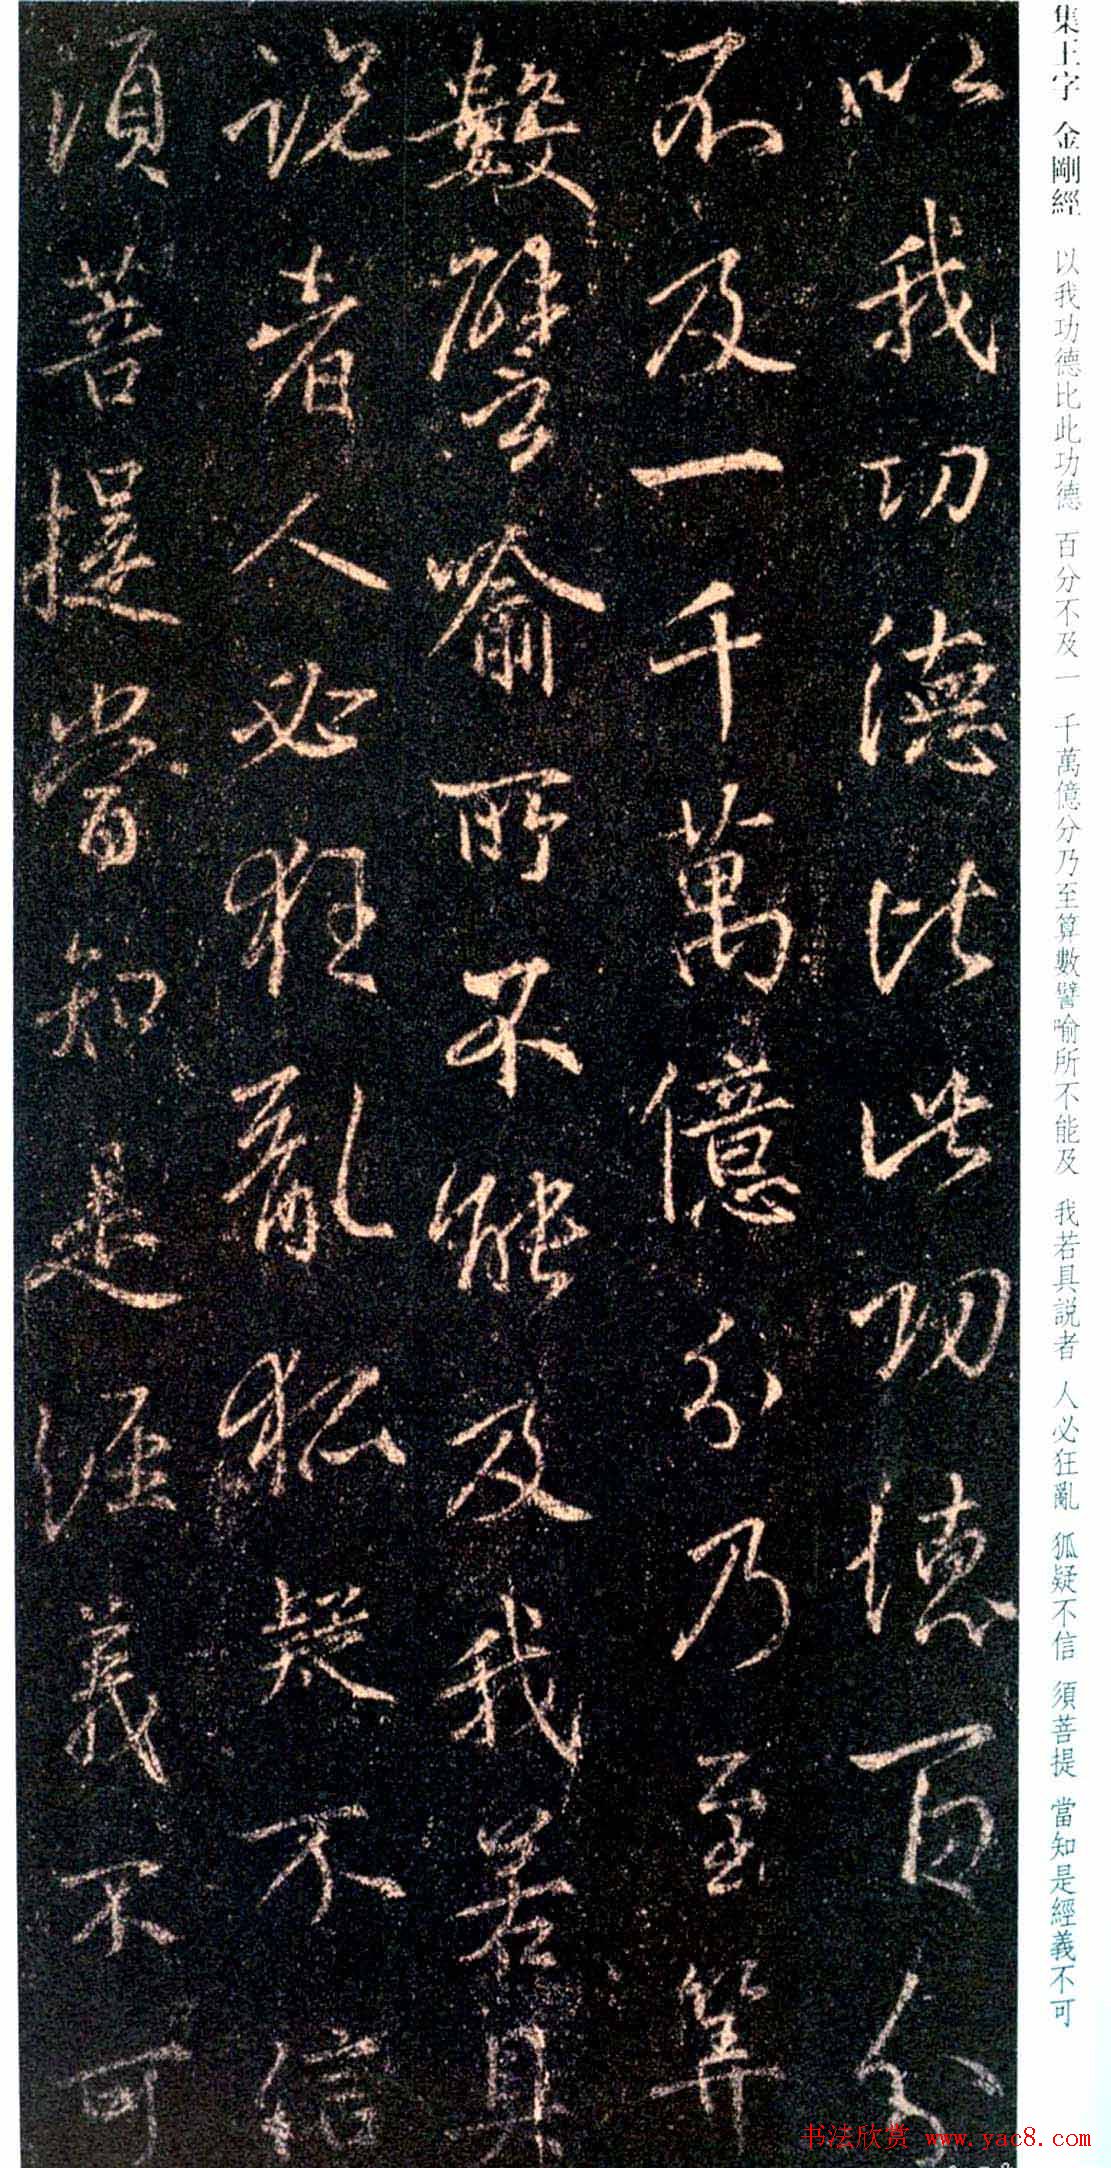 集王字 金剛經 以我功德比此功德 百分不及一 千萬億分乃至算數譬喻所不能及 我若具説者 人必狂亂 狐疑不信 須菩提 當知是經義不可
以我功德比此功德百分
不及一千萬億分乃至算
數譬喻所不能及我若具
説者人必狂亂狐疑不信
須菩提當知是經義不可
书法欣赏 www.yac8.com